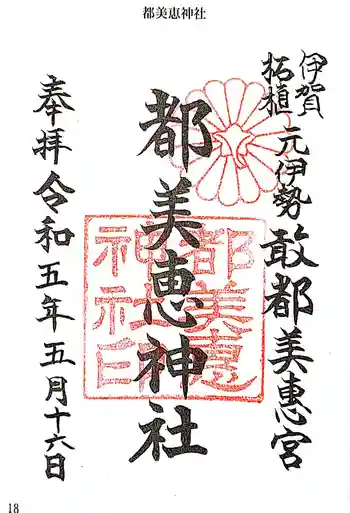 都美恵神社
伊賀
柘植
元伊勢 敢都美恵宮
都美恵神社
都美恵
神社印
奉拝 令和五年五月十六日
18